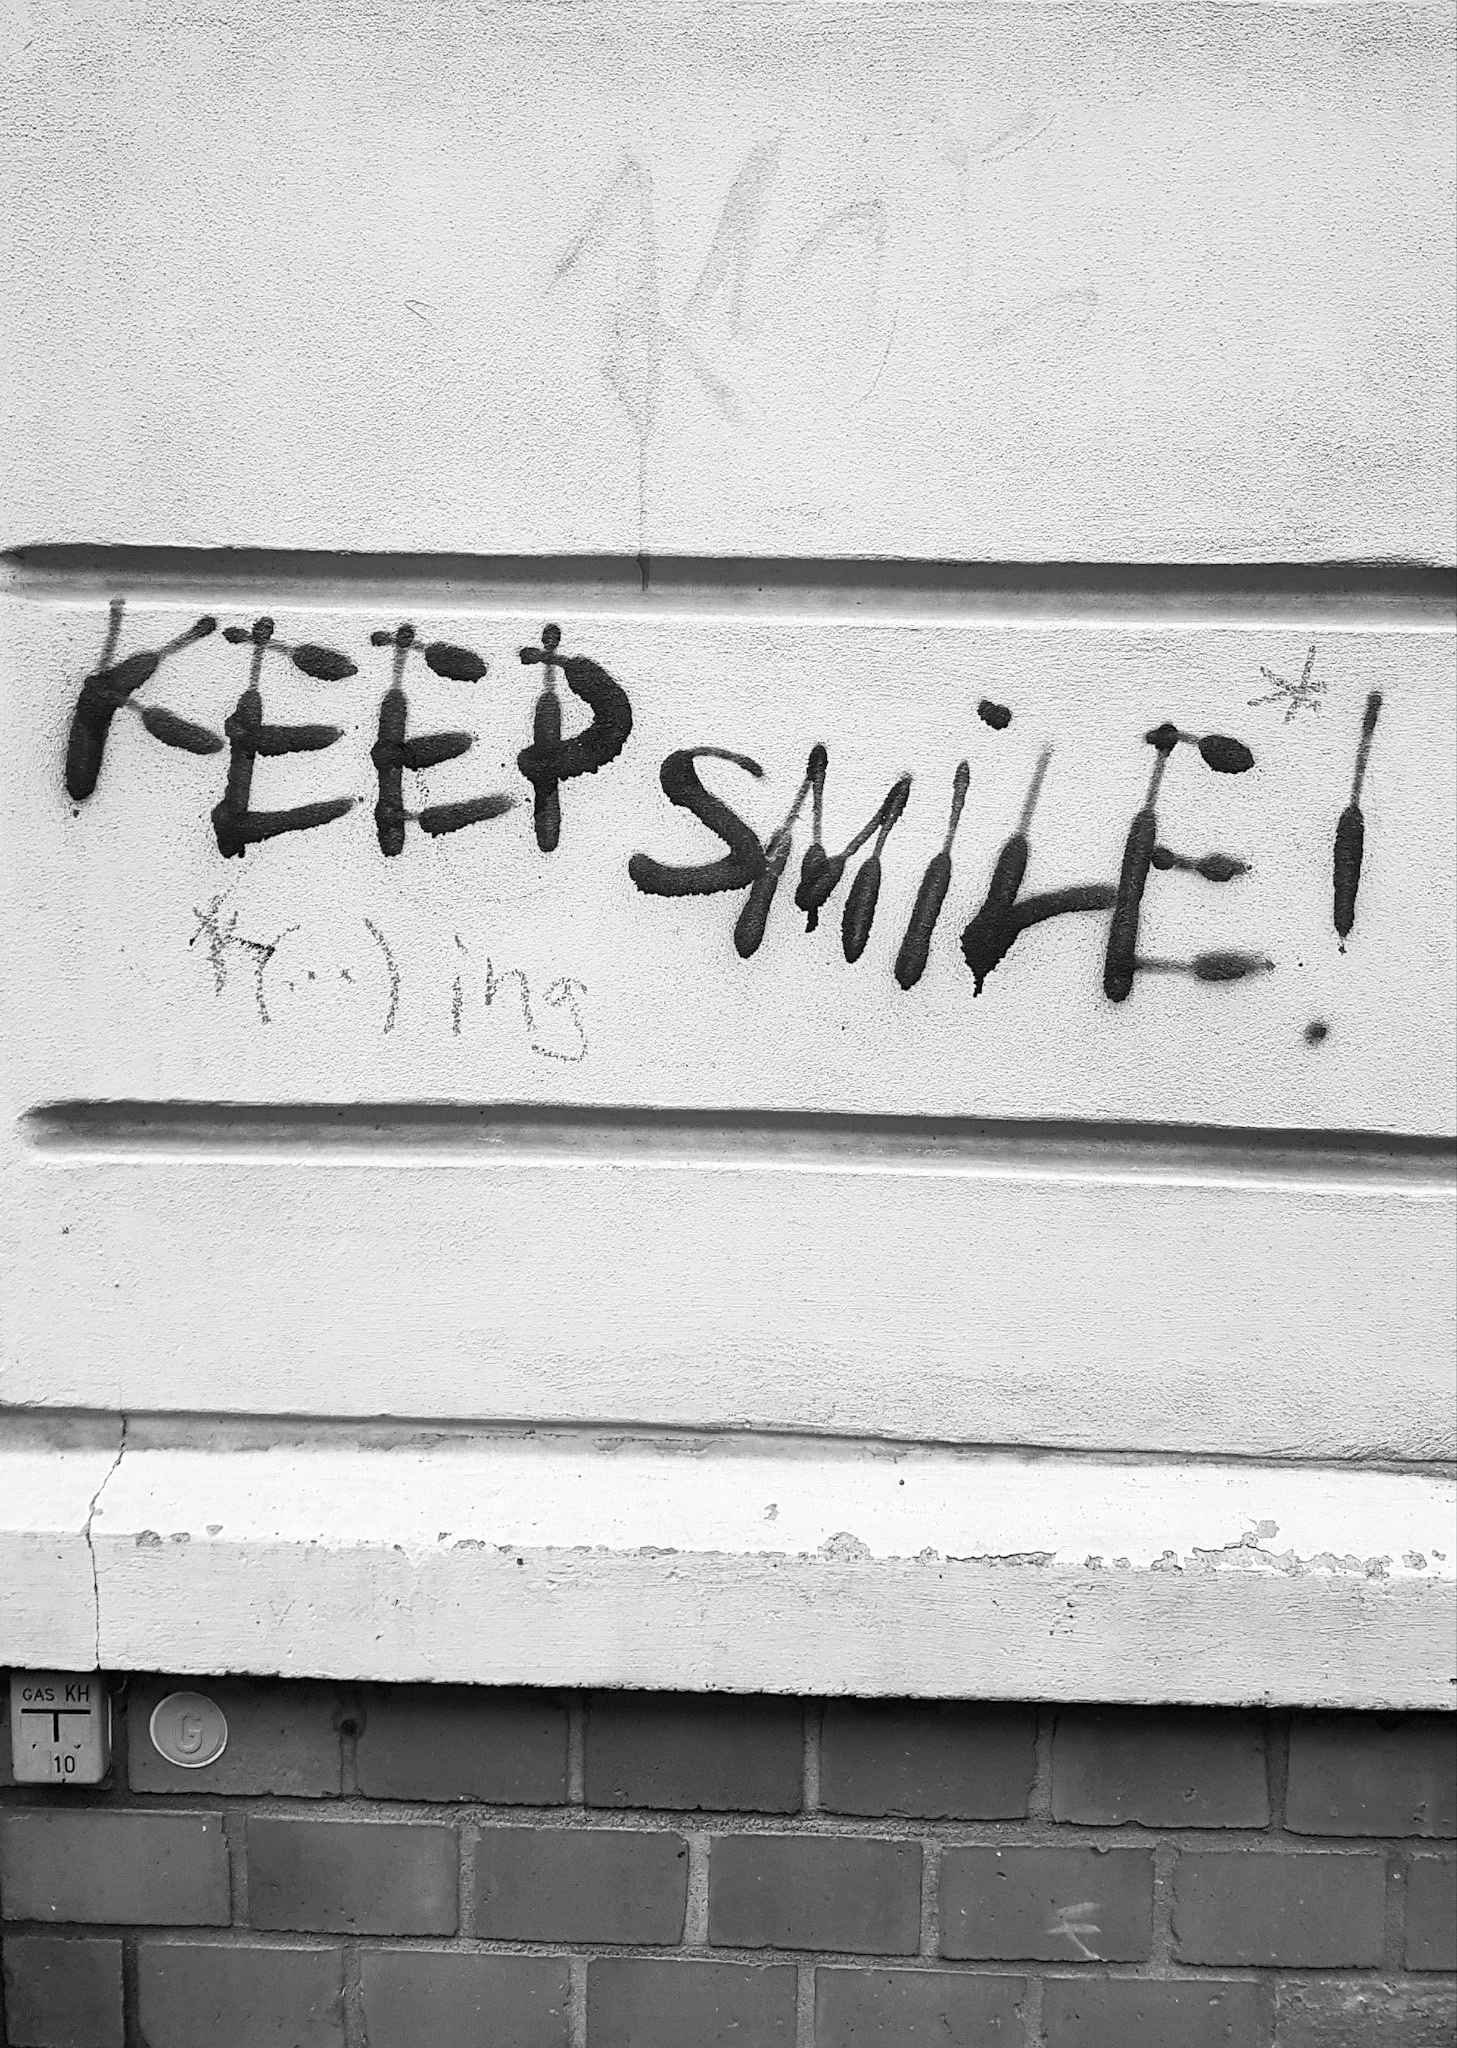 KEEP SMiLE*!
*(..) ing
GAS KH
10
G